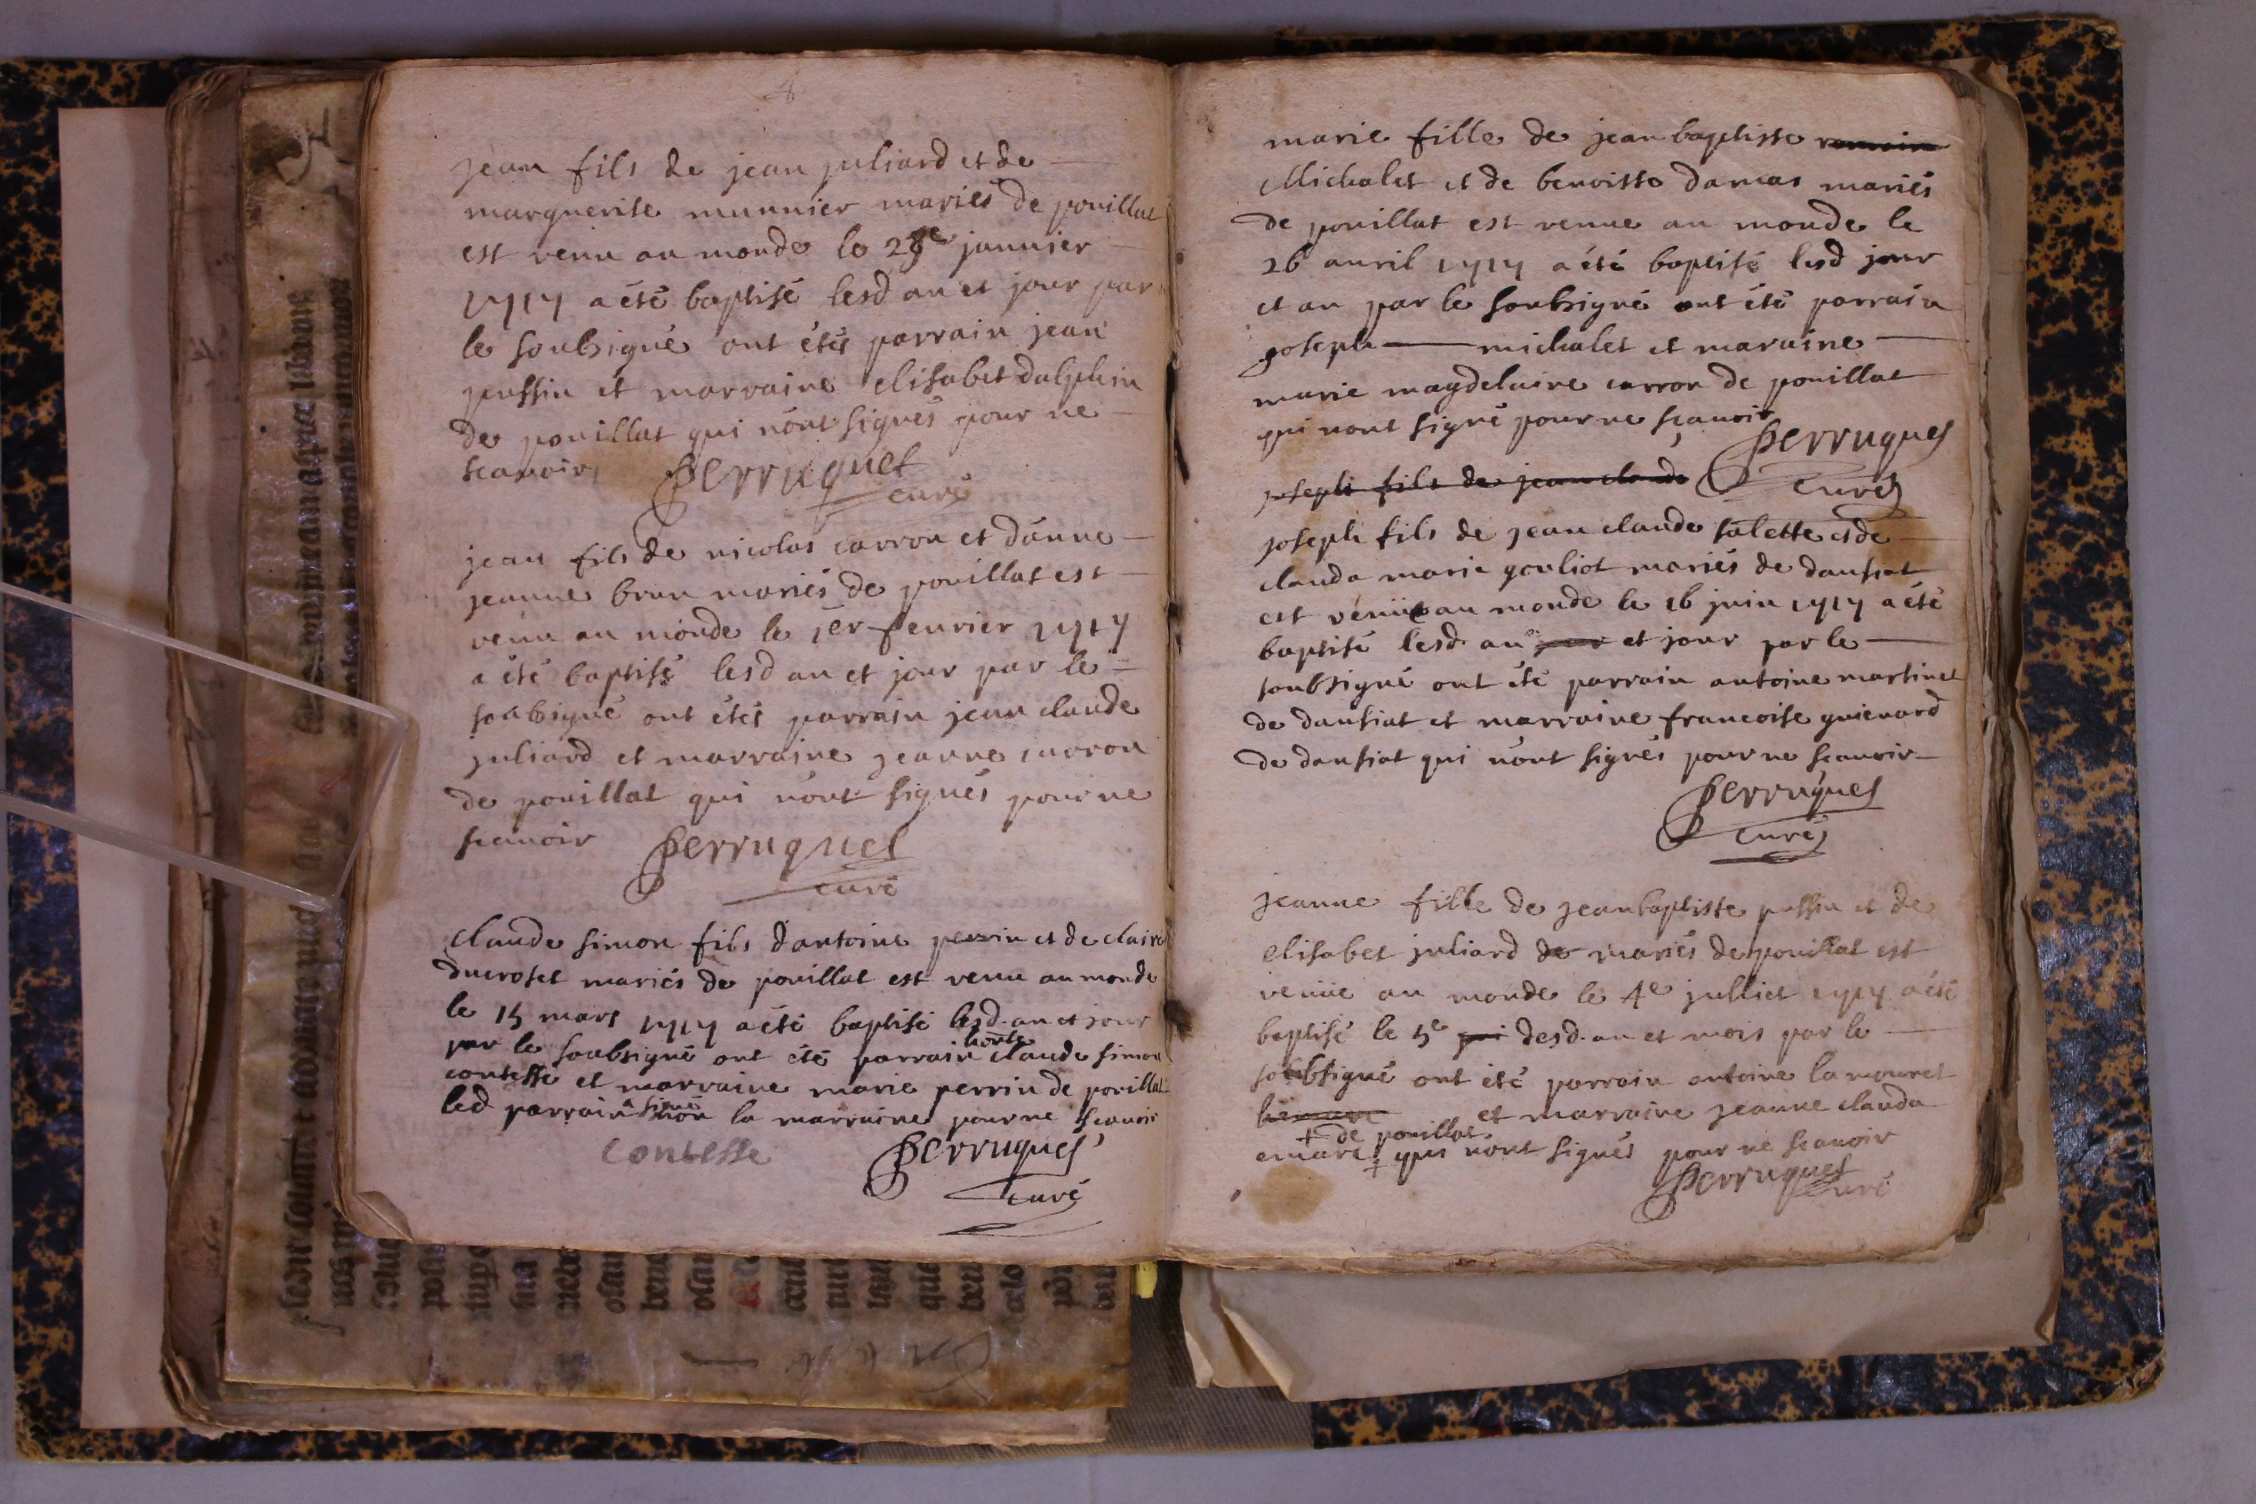 jean fils de jean juliard et de
marguerite munnier mariés de pouillat
est venu au monde le 28e januier
1717 a été baptisé lesd an et jour par
le soubsigné ont étés parrain jean
pussin et marraine elisabet dalphin
de pouillat qui n'ont signés pour ne
scauoir Perruquet
curé
jean fils de nicolas carron et d'anne
jeanne brun mariés de pouillat est
venu au monde le 1er feurier 1717
a été baptisé lesd an et jour par le
soubsigné ont étés parrain jean claude
juliard et marraine jeanne carron
de pouillat qui n'ont signés pour ne
scauoir Perruquet
curé
claude simon fils d'antoine perrin et de claire
ducroset mariés de pouillat est venu au monde
le 15 mars 1717 a été baptisé lesd. an et jour
par le soubsigné ont été parrain claude simon
contesse et marraine marie perrin de pouillat
led parrain a signé non la marraine pour ne scauoir
contesse Perruquet
curé
marie fille de jean baptiste
Michalet et de benoiste damas mariés
de pouillat est venue au monde le
26 auril 1717 a été baptisé lesd jour
et an par le soubsigné ont été parrain
joseph michalet et maraine
marie magdelaine carron de pouillat
qui n'ont signé pour ne scauoir Perruquet
joseph fils de jean claude curé
joseph fils de jean claude salette et de
clauda marie gouliot mariés de dansiat
est venüe au monde le 16 juin 1717 a été
baptisé lesd. an jour et jour par le
soubsigné ont été parrain antoine martinet
de dansiat et marraine francoise guienard
de dansiat qui n'ont signés pour ne scauoir
Perruquet
curé
jeanne fille de jean baptiste pussin et de
elisabet juliard de mariés de pouillat est
venüe au monde le 4e julliet 1717 a été
baptisé le 5e desd. an et mois par le
soubsigné ont été parrain antoine lamouret
et marraine jeanne clauda
+ de pouillat
emare + qui n'ont signés pour ne scauoir
Perruquet curé